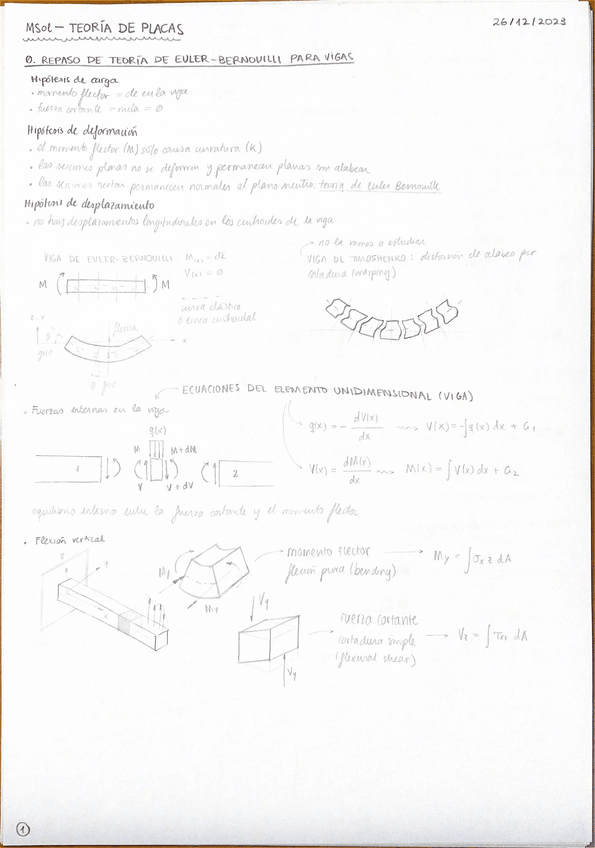 MSol - TEORÍA DE PLACAS
26/12/2023
0. REPASO DE TEORÍA DE EULER-BERNOUILLI PARA VIGAS
Hipótesis de carga
• momento flector = cte en la viga
• fuerza cortante = nula = 0
Hipótesis de deformación
• el momento flector (M) sólo causa curvatura (K)
• las secciones planas no se deforman y permanecen planas sin alabear
• las secciones rectas permanecen normales al plano neutro: teoría de Euler Bernouille
Hipótesis de desplazamiento
• no hay desplazamientos longitudinales en los centroides de la viga
no la vamos a estudiar
VIGA DE EULER-BERNOUILLI
M(x) = cte
V(x) = 0
VIGA DE TIMOSHENKO: distorsión de alabeo por
cortadura (warping)
M
M
curva elástica
o línea centroidal
flecha
x
giro
giro
ECUACIONES DEL ELEMENTO UNIDIMENSIONAL (VIGA)
• Fuerzas internas en la viga
q(x)
q(x) = - dV(x)/dx
V(x) = -∫q(x) dx + C1
M
M+dM
1
2
V
V+dV
V(x) = dM(x)/dx
M(x) = ∫V(x) dx + C2
equilibrio interno entre la fuerza cortante y el momento flector
• Flexión vertical
My
My
momento flector
flexión pura (bending)
My = ∫σx z dA
Vy
Vy
fuerza cortante
cortadura simple
(flexural shear)
Vz = ∫τxz dA
1